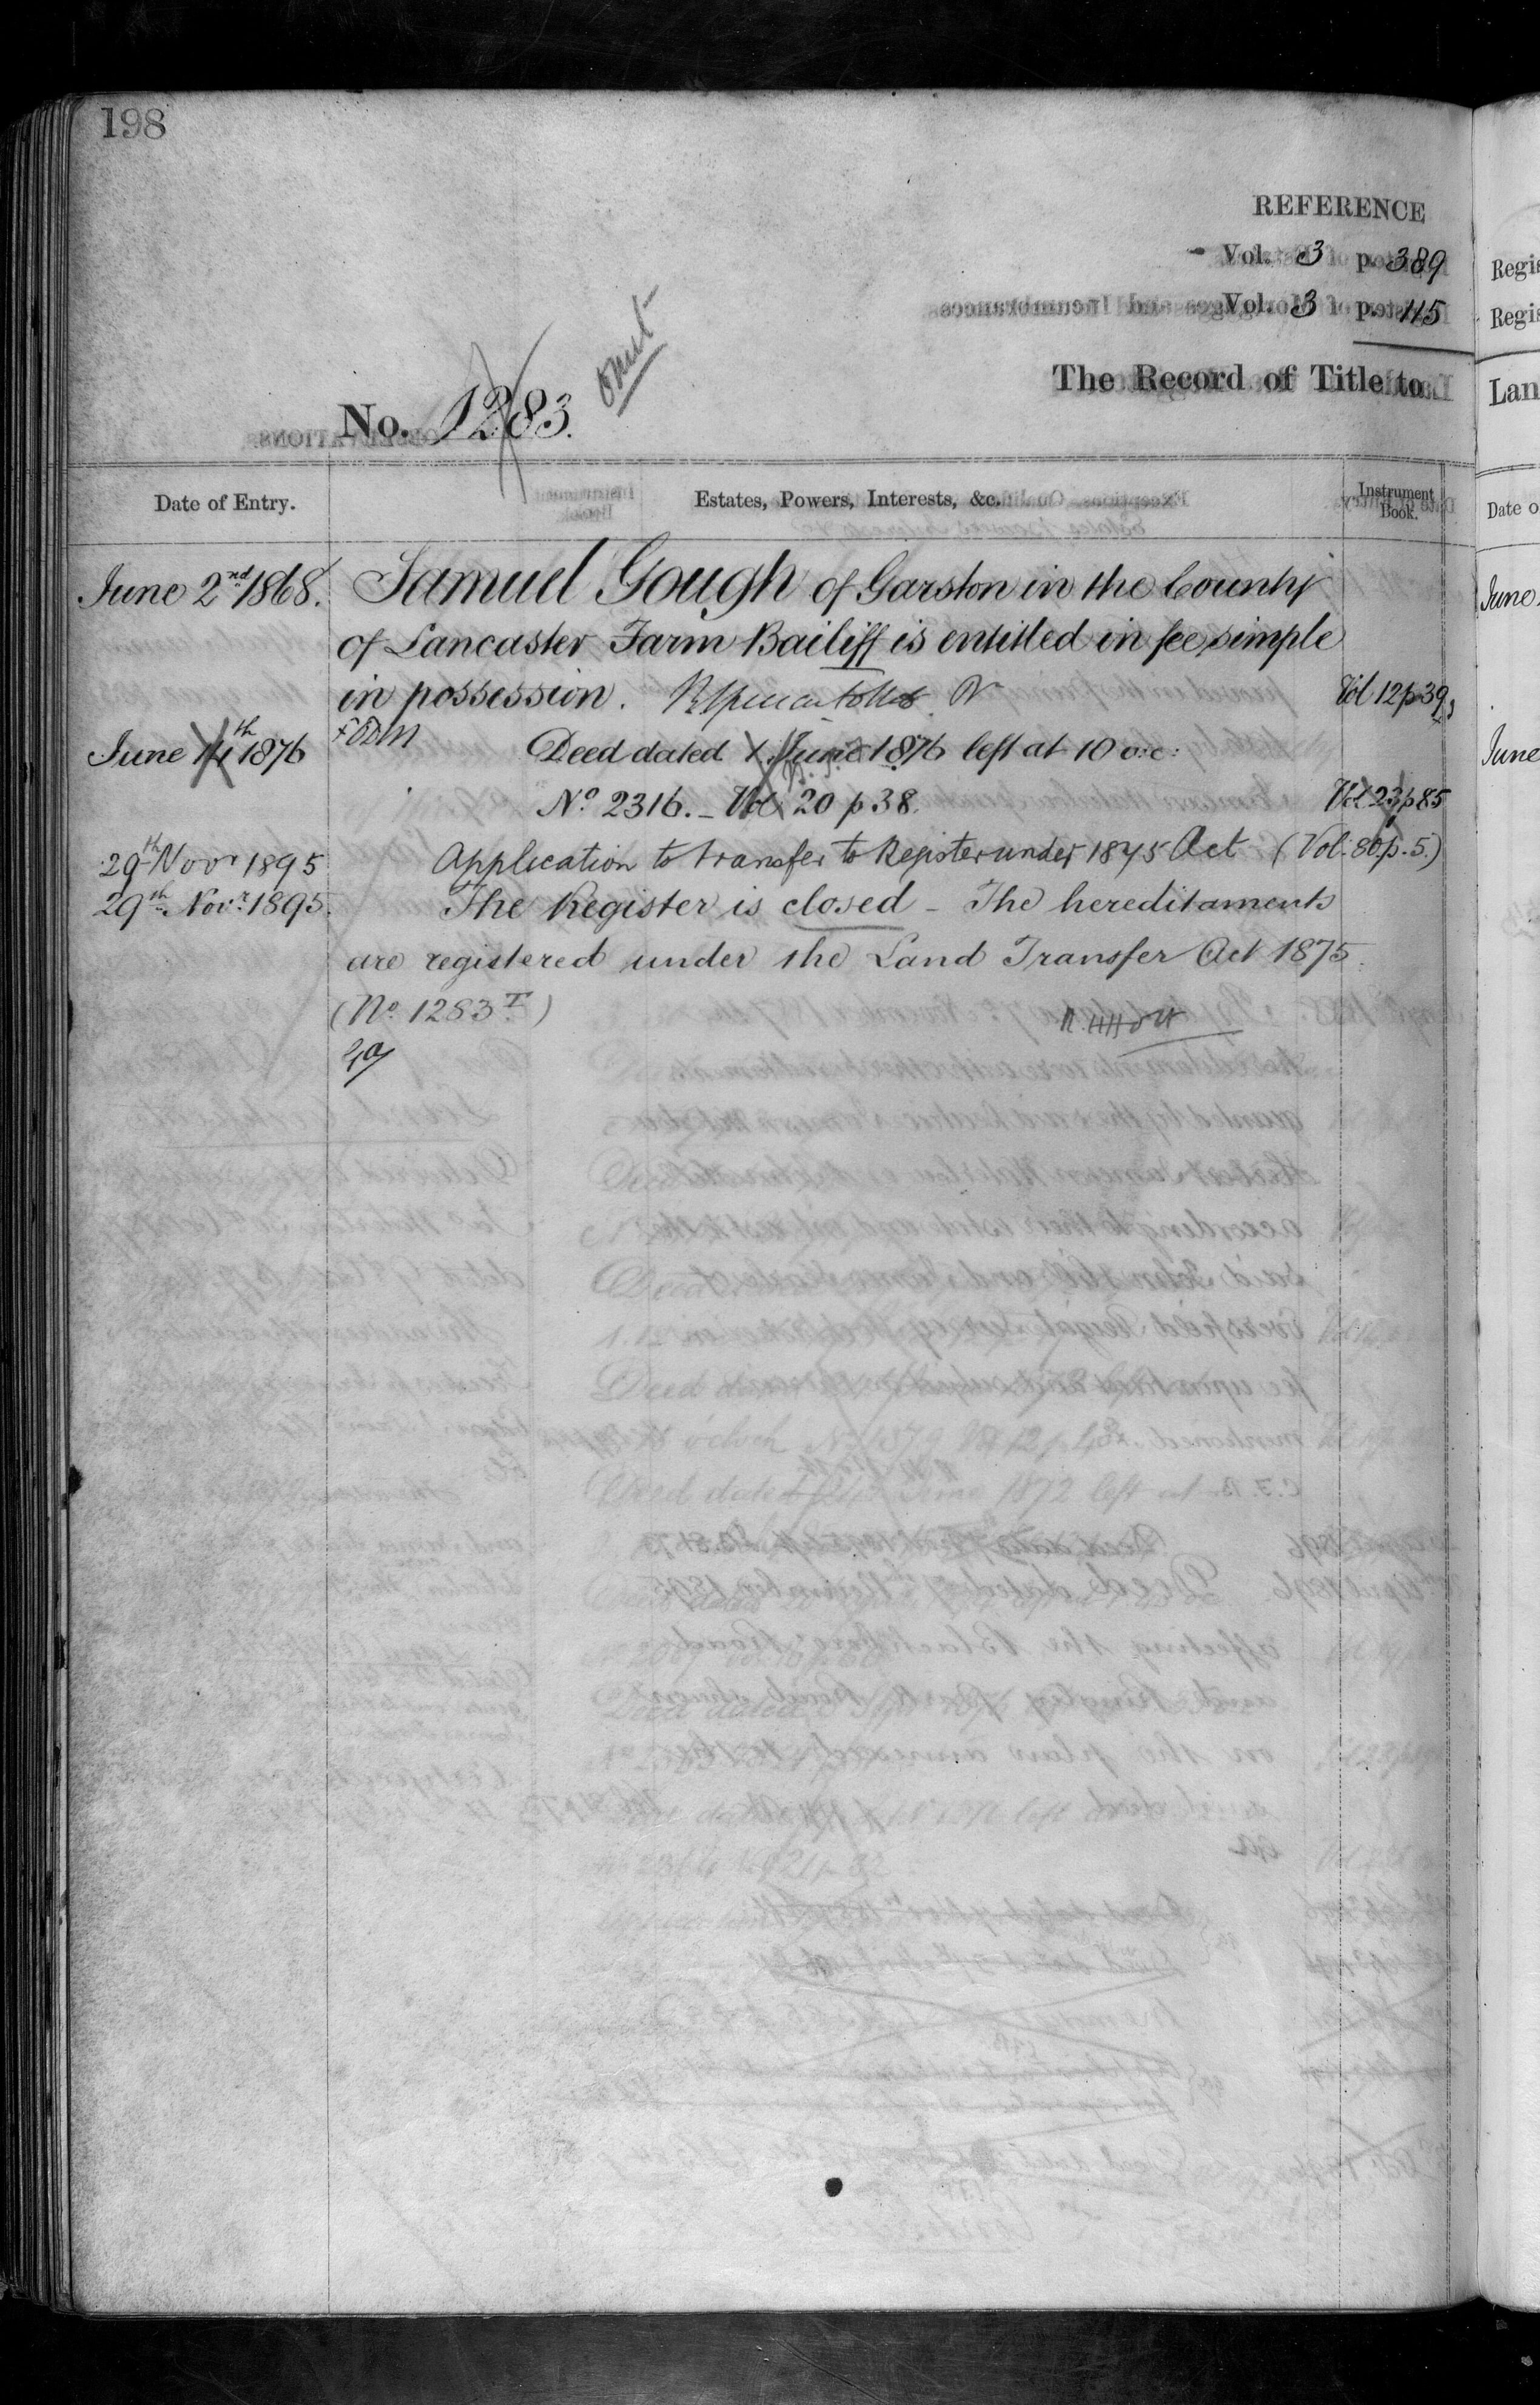 198
REFERENCE
Vol. 3 p. 389
Vol. 3 p. 115
The Record of Title to
No. 1283. omit
Date of Entry. Estates, Powers, Interests, &c. Instrument Book.
June 2nd 1868. Samuel Gough of Garston in the County
of Lancaster Farm Bailiff is entitled in fee simple
in possession. Vol 12 p 39
June 14th 1876 Deed dated 1 June 1876 left at 10 o.c:
No 2316. - Vol 20 p 38. Vol 23 p 85
29th Novr 1895 Application to transfer to Register under 1875 Act (Vol. 80 p. 5.)
29th Novr 1895. The Register is closed - The hereditaments
are registered under the Land Transfer Act 1875.
(No. 1283 T)
Regis
Regis
Lan
Date o
June
June